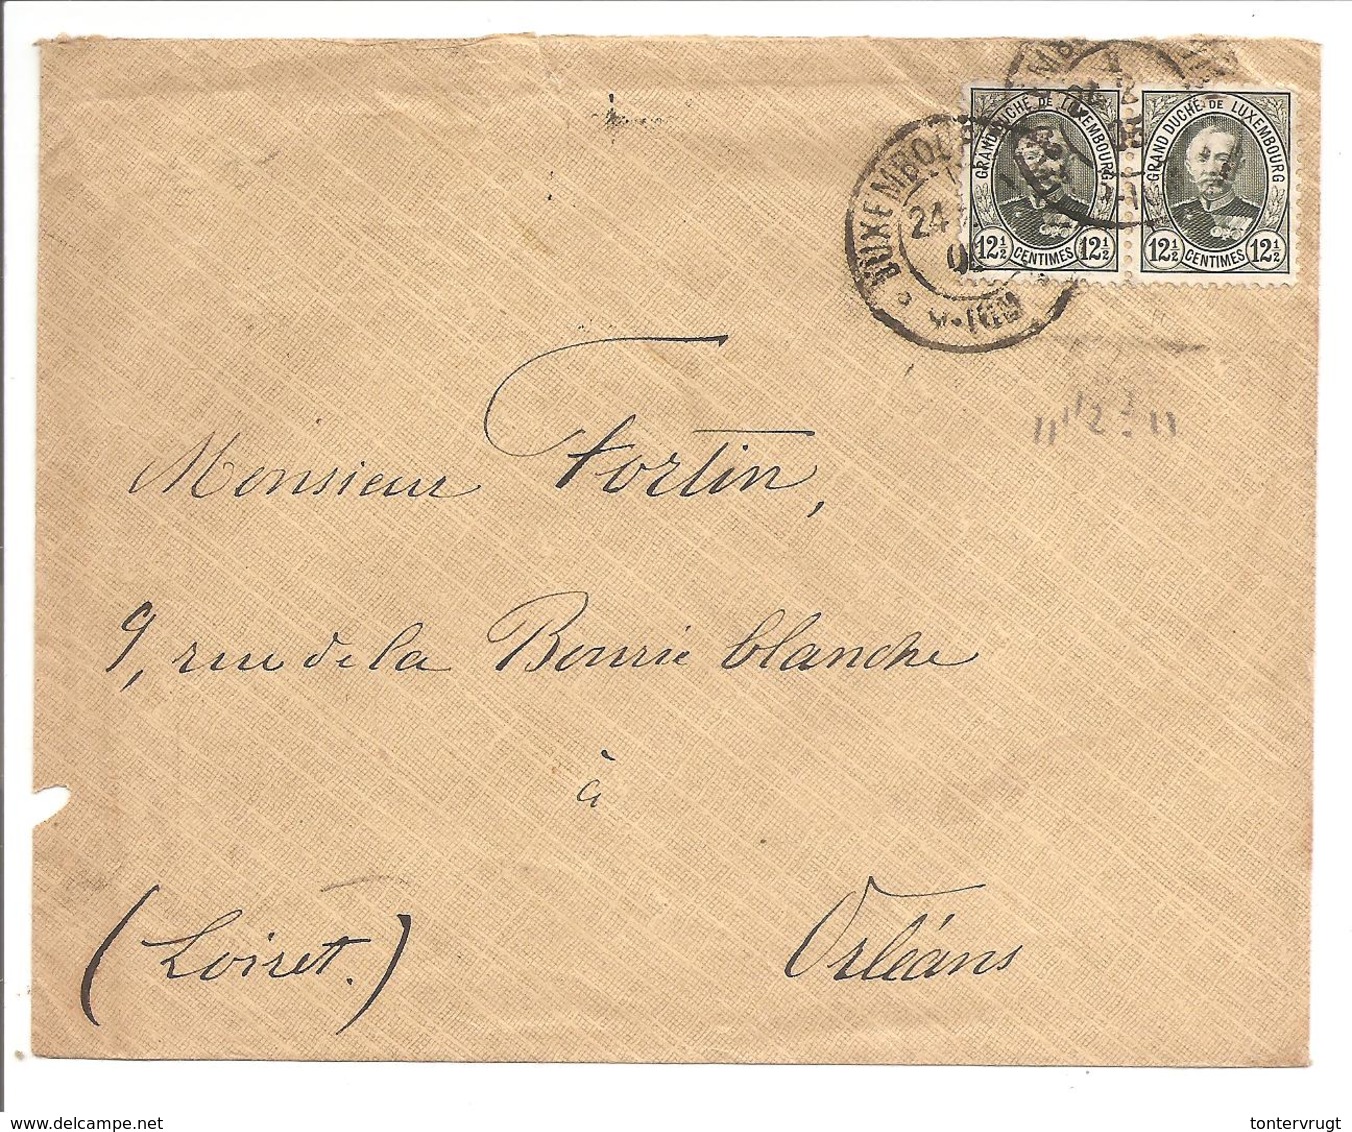 GRAND DUCHÉ DE LUXEMBOURG
12½ CENTIMES 12½
GRAND DUCHÉ DE LUXEMBOURG
12½ CENTIMES 12½
LUXEMBOURG
24
Monsieur Fortin,
9, rue de la Bourie blanche
à
(Loiret.) Orléans
delcampe.net
tontervrugt